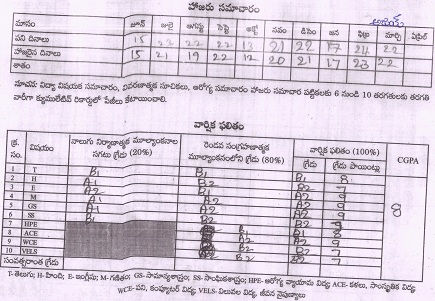 హాజరు సమాచారం
మాసం జూన్ జులై ఆగస్టు సెప్టె అక్టో నవం డిసెం జన ఫిబ్ర మార్చి ఏప్రిల్
పని దినాలు 15 23 22 22 13 21 22 17 24 22
హాజరైన దినాలు 15 21 19 22 12 20 21 17 23 22
శాతం
సూచన: విద్యా విషయక సమాచారం, వివరణాత్మక సూచికలు, ఆరోగ్య సమాచారం హాజరు సమాచార పట్టికలకు 6 నుండి 10 తరగతులకు తరగతి
వారీగా క్యుములేటివ్ రికార్డులో పేజీలు కేటాయించాలి.
వార్షిక ఫలితం
క్ర. సం. విషయం నాలుగు నిర్మాణాత్మక మూల్యాంకనాల సగటు గ్రేడు (20%) రెండవ సంగ్రహణాత్మక మూల్యాంకనంలోని గ్రేడు (80%) వార్షిక ఫలితం (100%) CGPA
గ్రేడు గ్రేడు పాయింట్లు
1 T B1 B1 B1 8
2 H A1 B2 B2 7
3 E A1 B2 B2 7
4 M A1 A2 A2 9
5 GS A2 A2 A2 9
6 SS B1 A2 A2 9
7 HPE B2 B2 7
8 ACE A2 B1 8
9 WCE A2 A2 9
10 VELS B2 B2 7
8
సంవత్సరాంత గ్రేడు
T-తెలుగు; H-హింది; E- ఇంగ్లీషు; M-గణితం; GS- సామాన్యశాస్త్రం; SS-సాంఘికశాస్త్రం; HPE- ఆరోగ్య వ్యాయామ విద్య ACE- కళలు, సాంస్కృతిక విద్య
WCE-పని, కంప్యూటర్ విద్య; VELS-విలువల విద్య, జీవన నైపుణ్యాలు